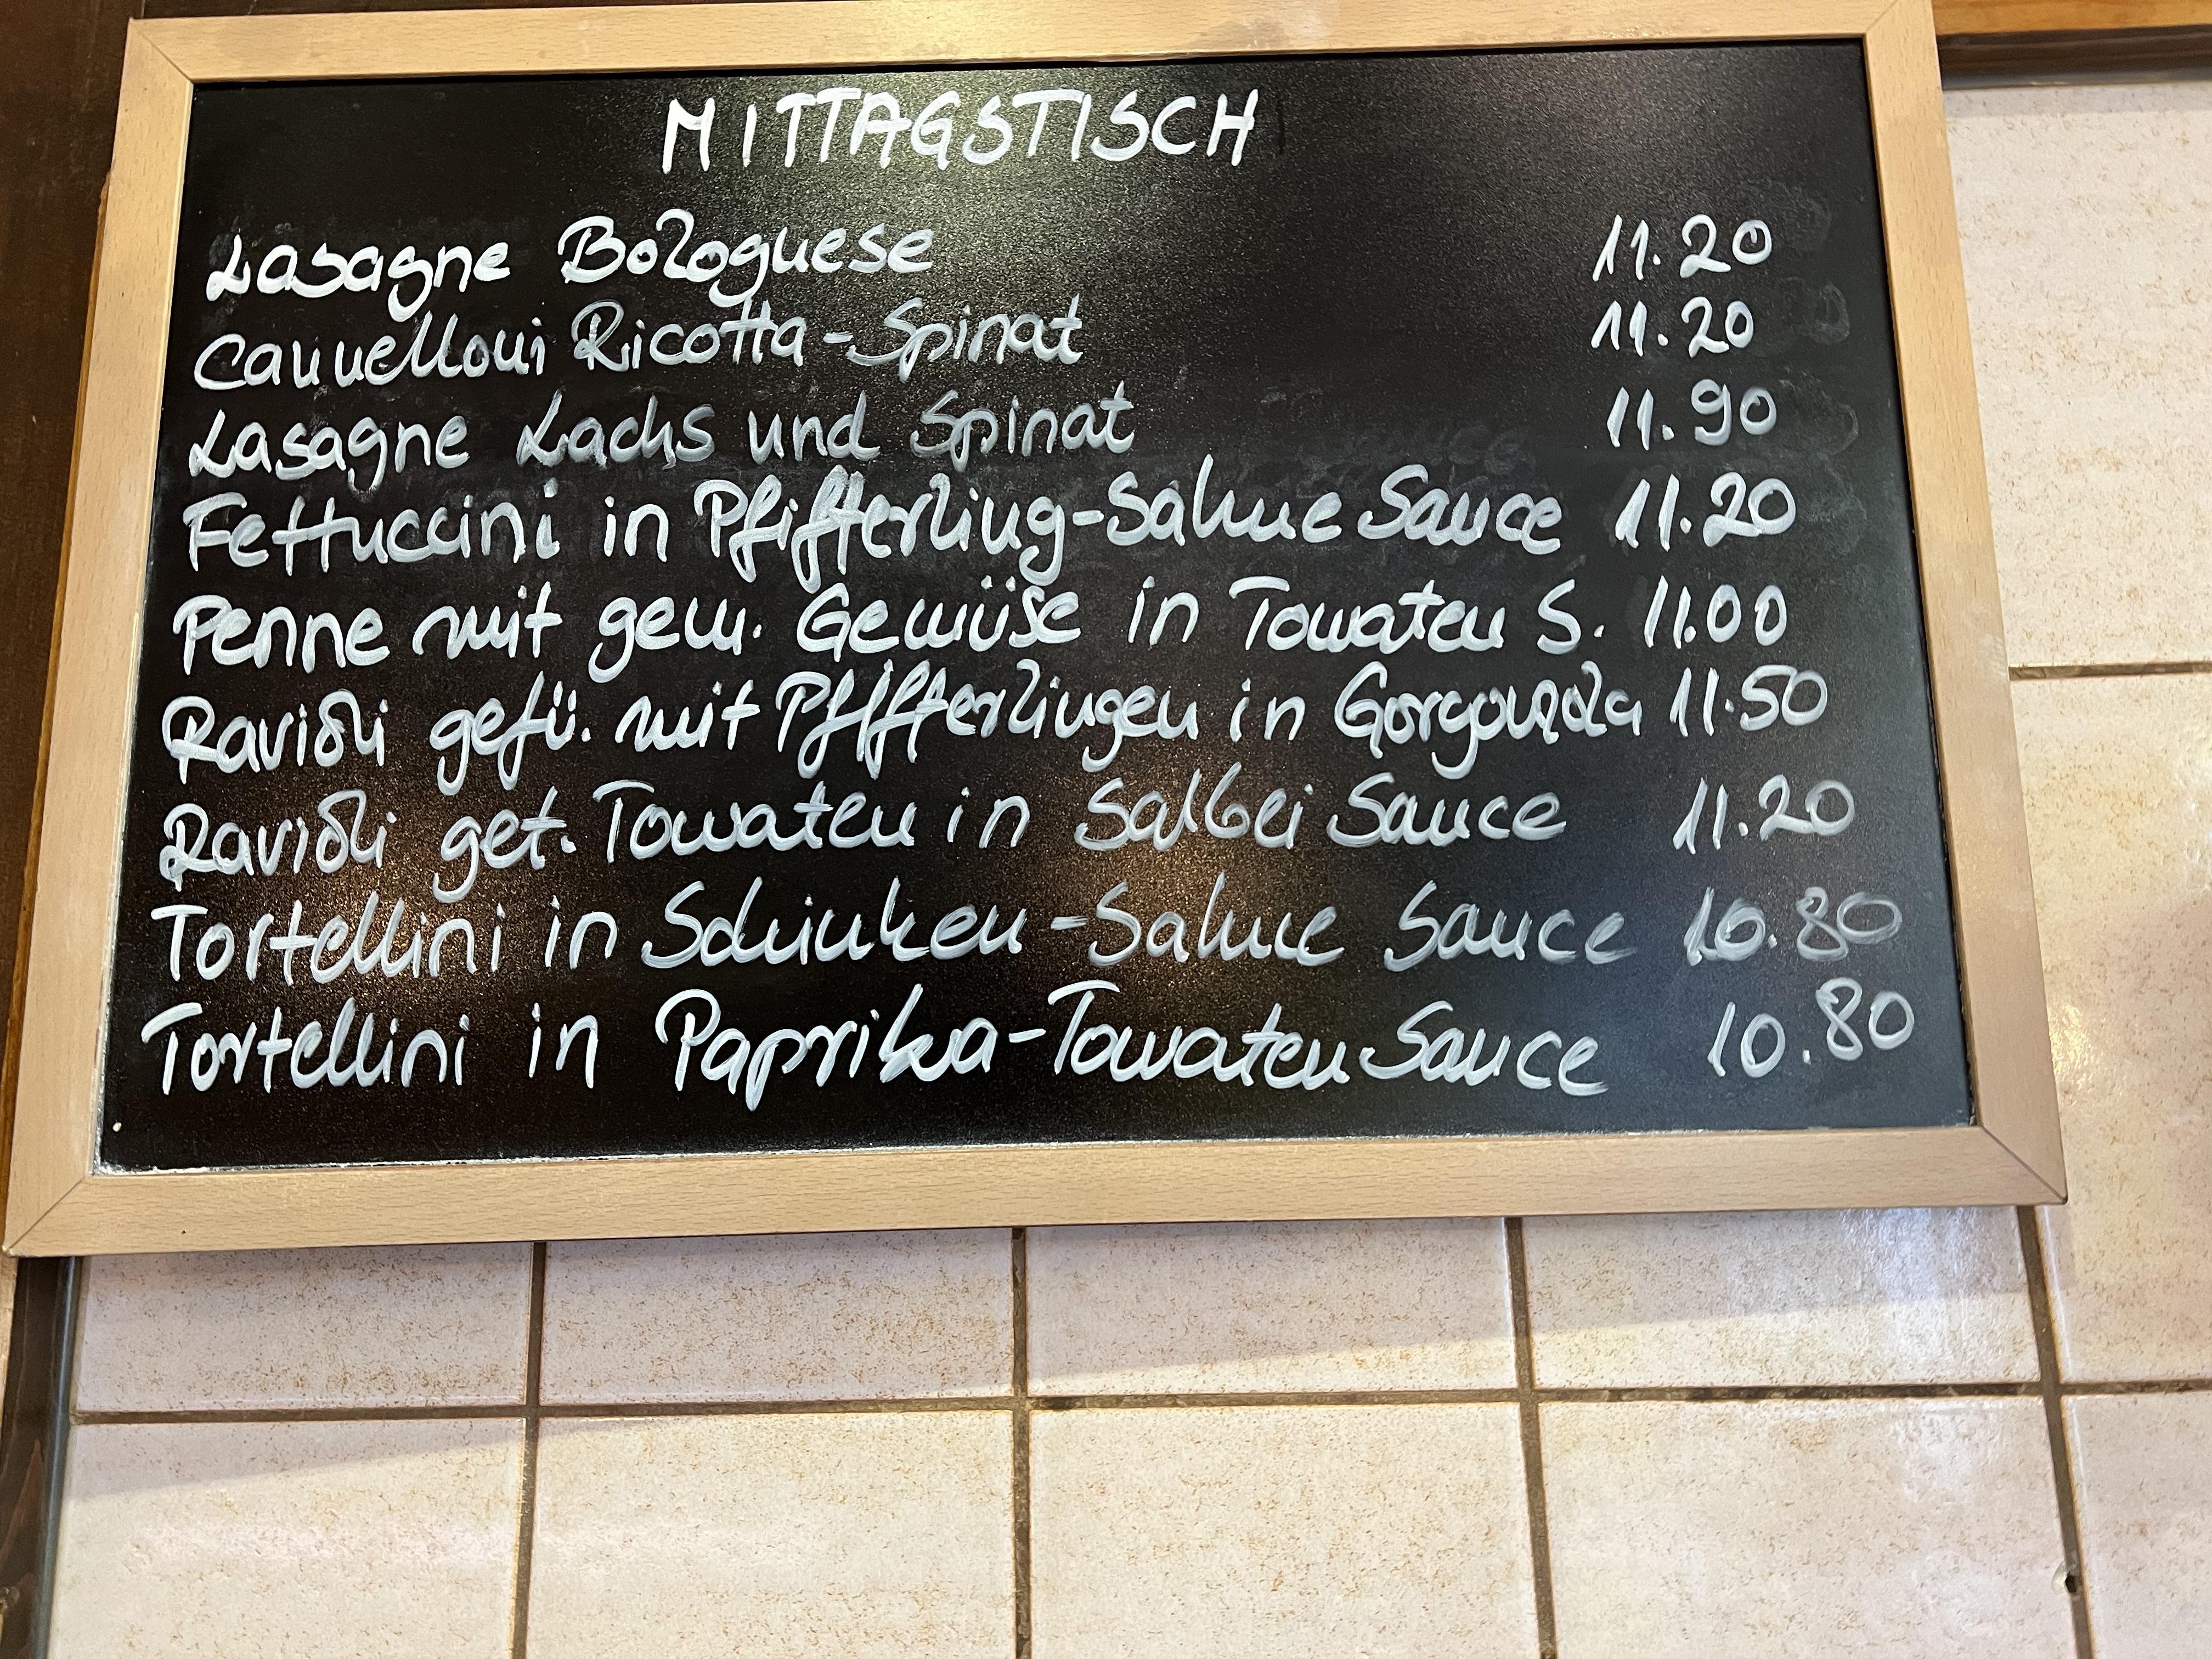 MITTAGSTISCH
Lasagne Bolognese 11.20
Cannelloni Ricotta-Spinat 11.20
Lasagne Lachs und Spinat 11.90
Fettuccini in Pfifferling-Sahne Sauce 11.20
Penne mit gem. Gemüse in Tomaten S. 11.00
Ravioli gefü. mit Pfifferlingen in Gorgonzola 11.50
Ravioli get. Tomaten in Salbei Sauce 11.20
Tortellini in Schinken-Sahne Sauce 10.80
Tortellini in Paprika-Tomaten Sauce 10.80